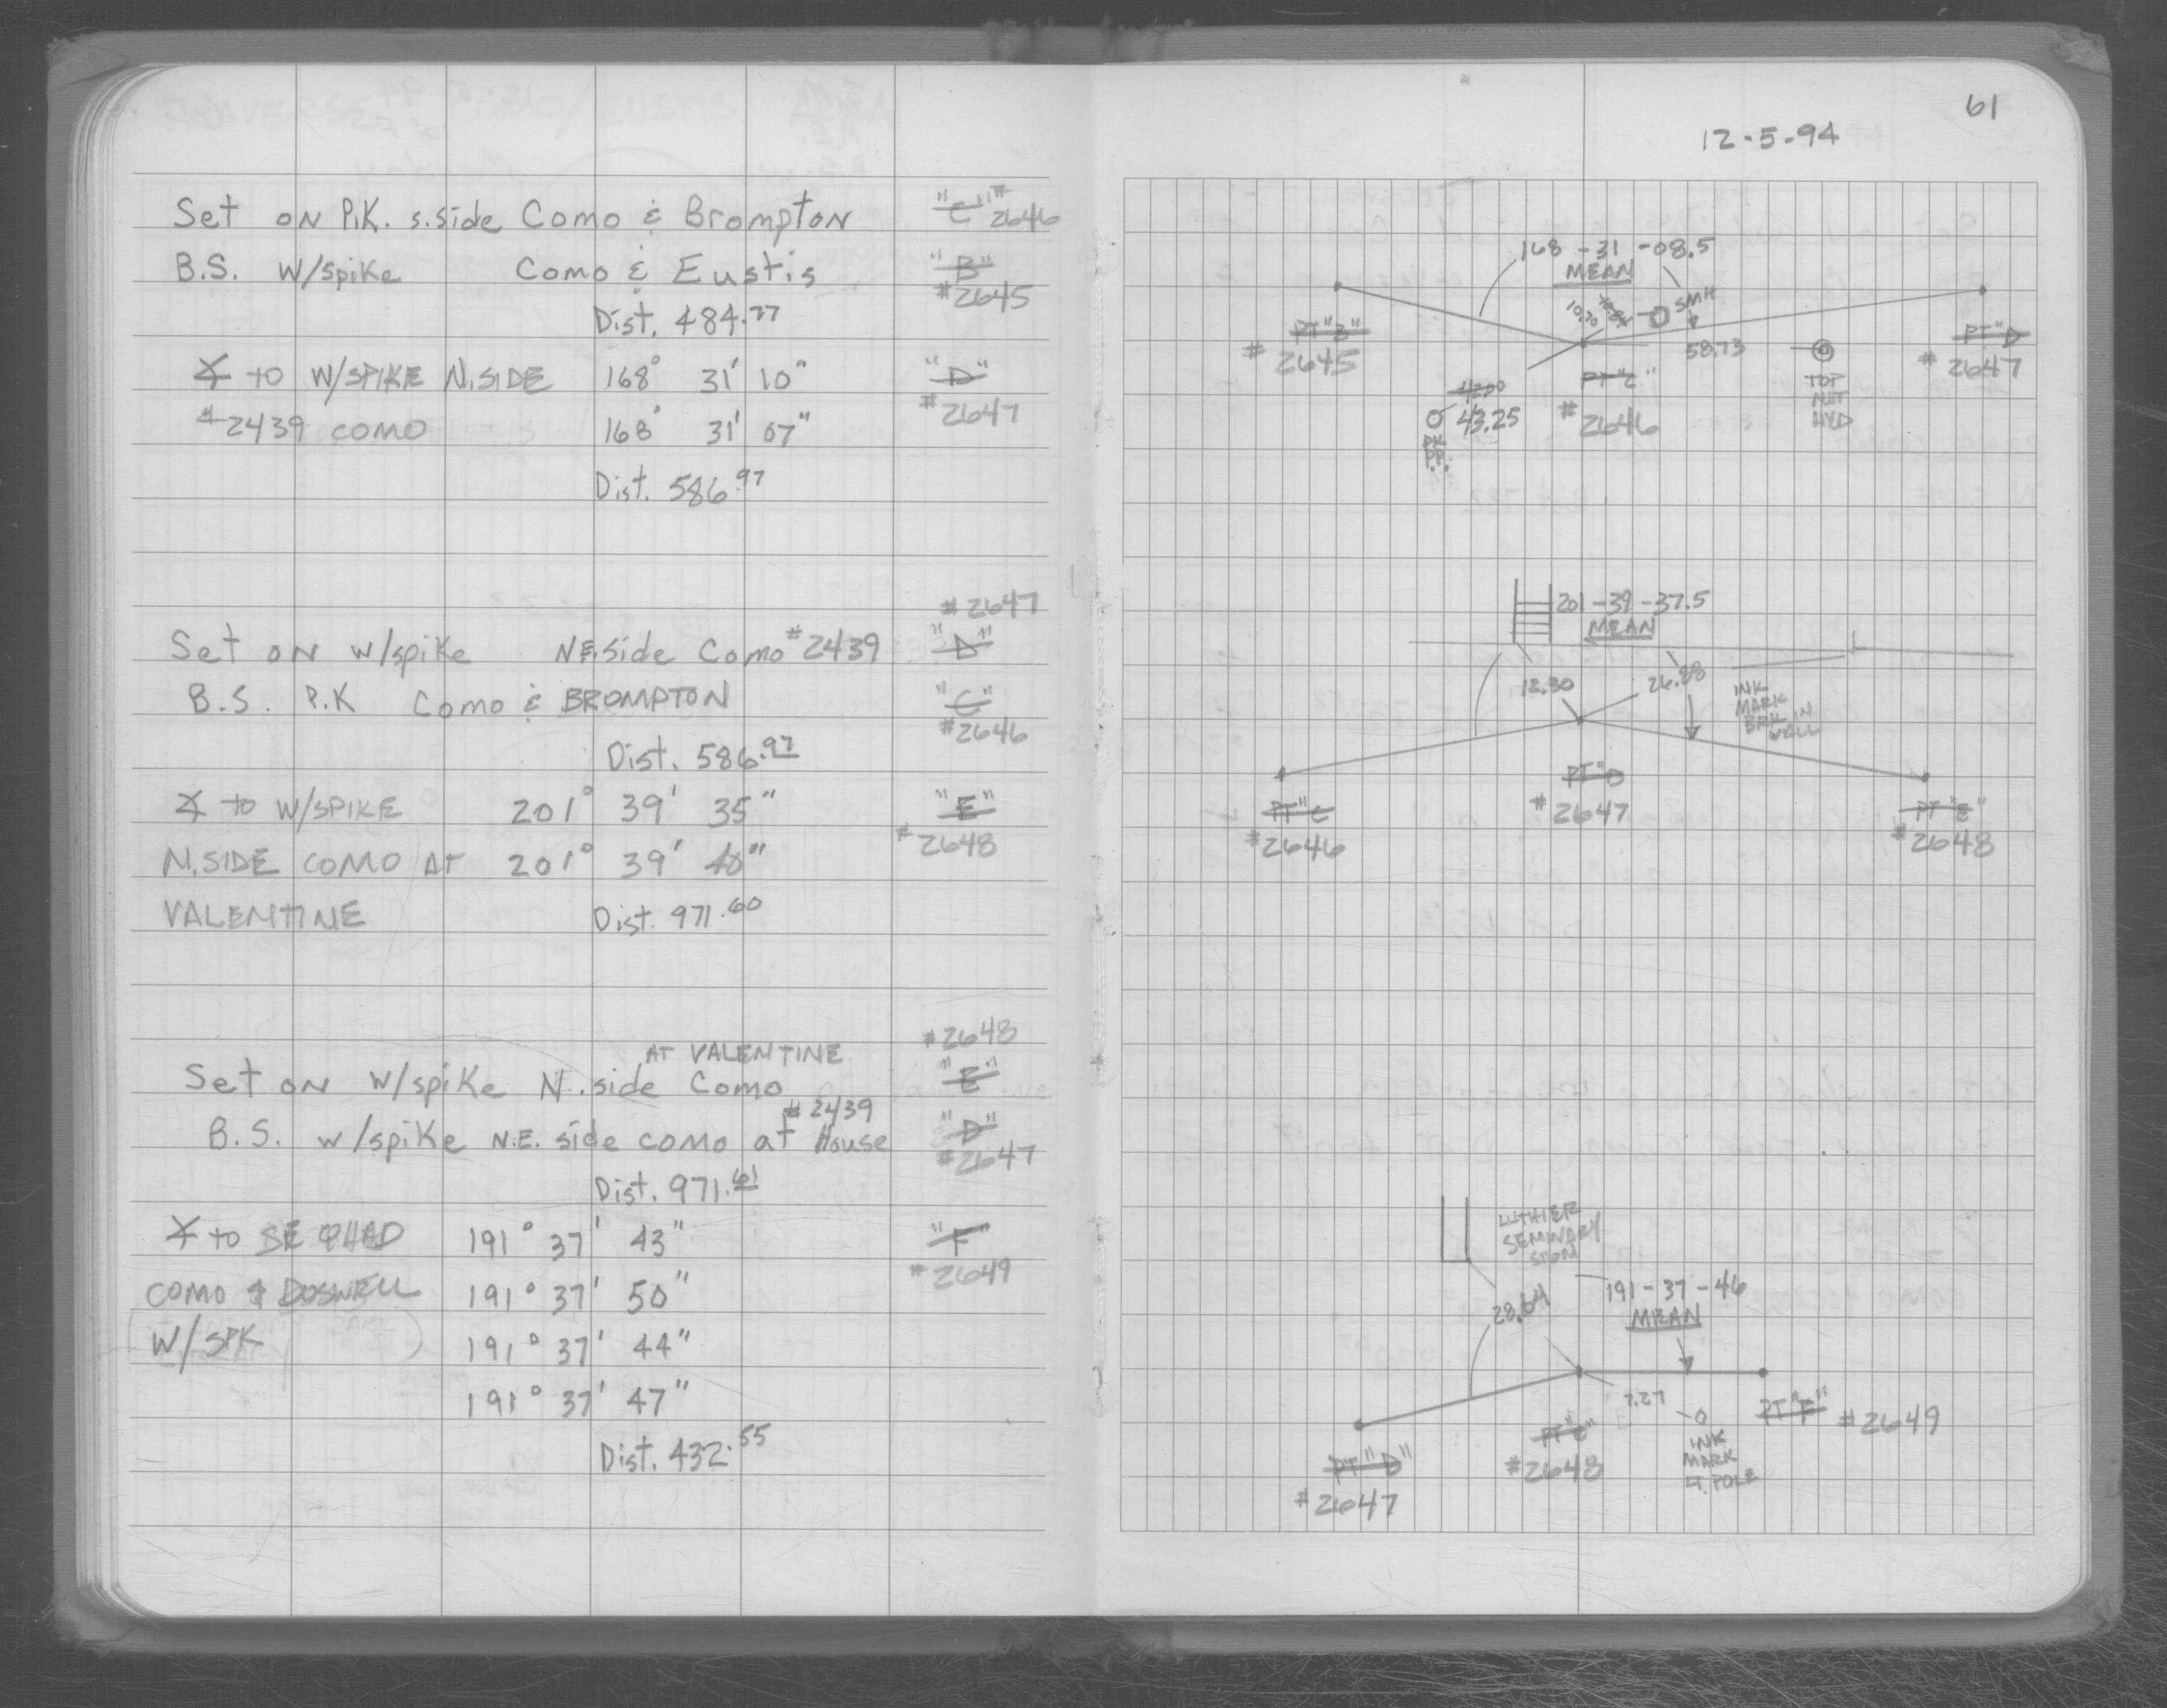 Set on P.K. s.side Como & Brompton "C" # 2646
B.S. W/spike Como & Eustis "B"
#2645
Dist. 484.77
∡ to W/SPIKE N.SIDE 168° 31' 10" "D"
#2439 COMO 168° 31' 07" #2647
Dist. 586.97
#2647
Set on w/spike N.E. side Como #2439 "D"
B.S. P.K Como & BROMPTON "C"
#2646
Dist. 586.97
∡ to W/SPIKE 201° 39' 35" "E"
N.SIDE COMO AT 201° 39' 40" #2648
VALENTINE Dist. 971.60
#2648
AT VALENTINE
Set on W/spike N.side Como "E"
#2439
B.S. w/spike N.E. side como at House "D"
#2647
Dist. 971.61
∡ to SE QUAD 191° 37' 43" "F"
COMO & DOSWELL 191° 37' 50" #2649
W/SPK 191° 37' 44"
191° 37' 47"
Dist. 432.55
61
12-5-94
168-31-08.5
MEAN
10.20
SMH
58.73
PT "B"
#2645
PT "D"
#2647
43.25
PK
P.P.
PT "C"
#2646
TOP
NUT
HYD
201-39-37.5
MEAN
12.30
26.88
INK
MARK
BRK IN
WALL
PT "C"
#2646
PT "D"
#2647
PT "E"
#2648
LUTHIER
SEMINARY
SIGN
28.64
191-37-46
MEAN
7.27
PT "F" #2649
INK
MARK
LT. POLE
#2648
PT "D"
#2647